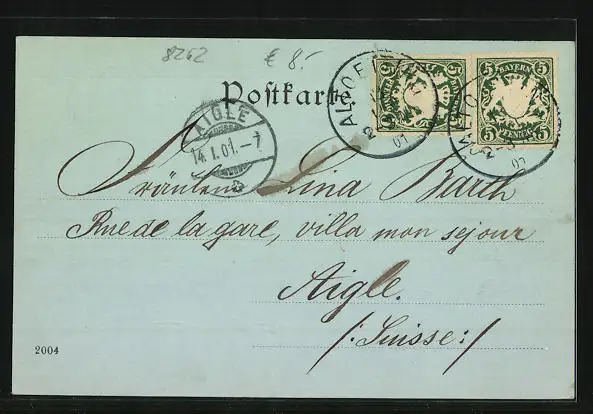 8262 € 8.-
Postkarte.
BAYERN
5 5
PFENNIG
BAYERN
5 5
PFENNIG
AIGLE
14. I. 01. - 7
Fräulein Lina Barth
Rue de la gare, villa mon sejour
Aigle.
/: Suisse :/
2004